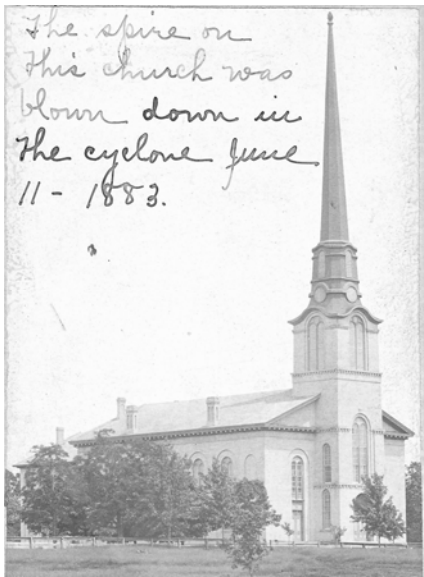 The spire on
This church was
blown down in
the cyclone June
11 - 1883.